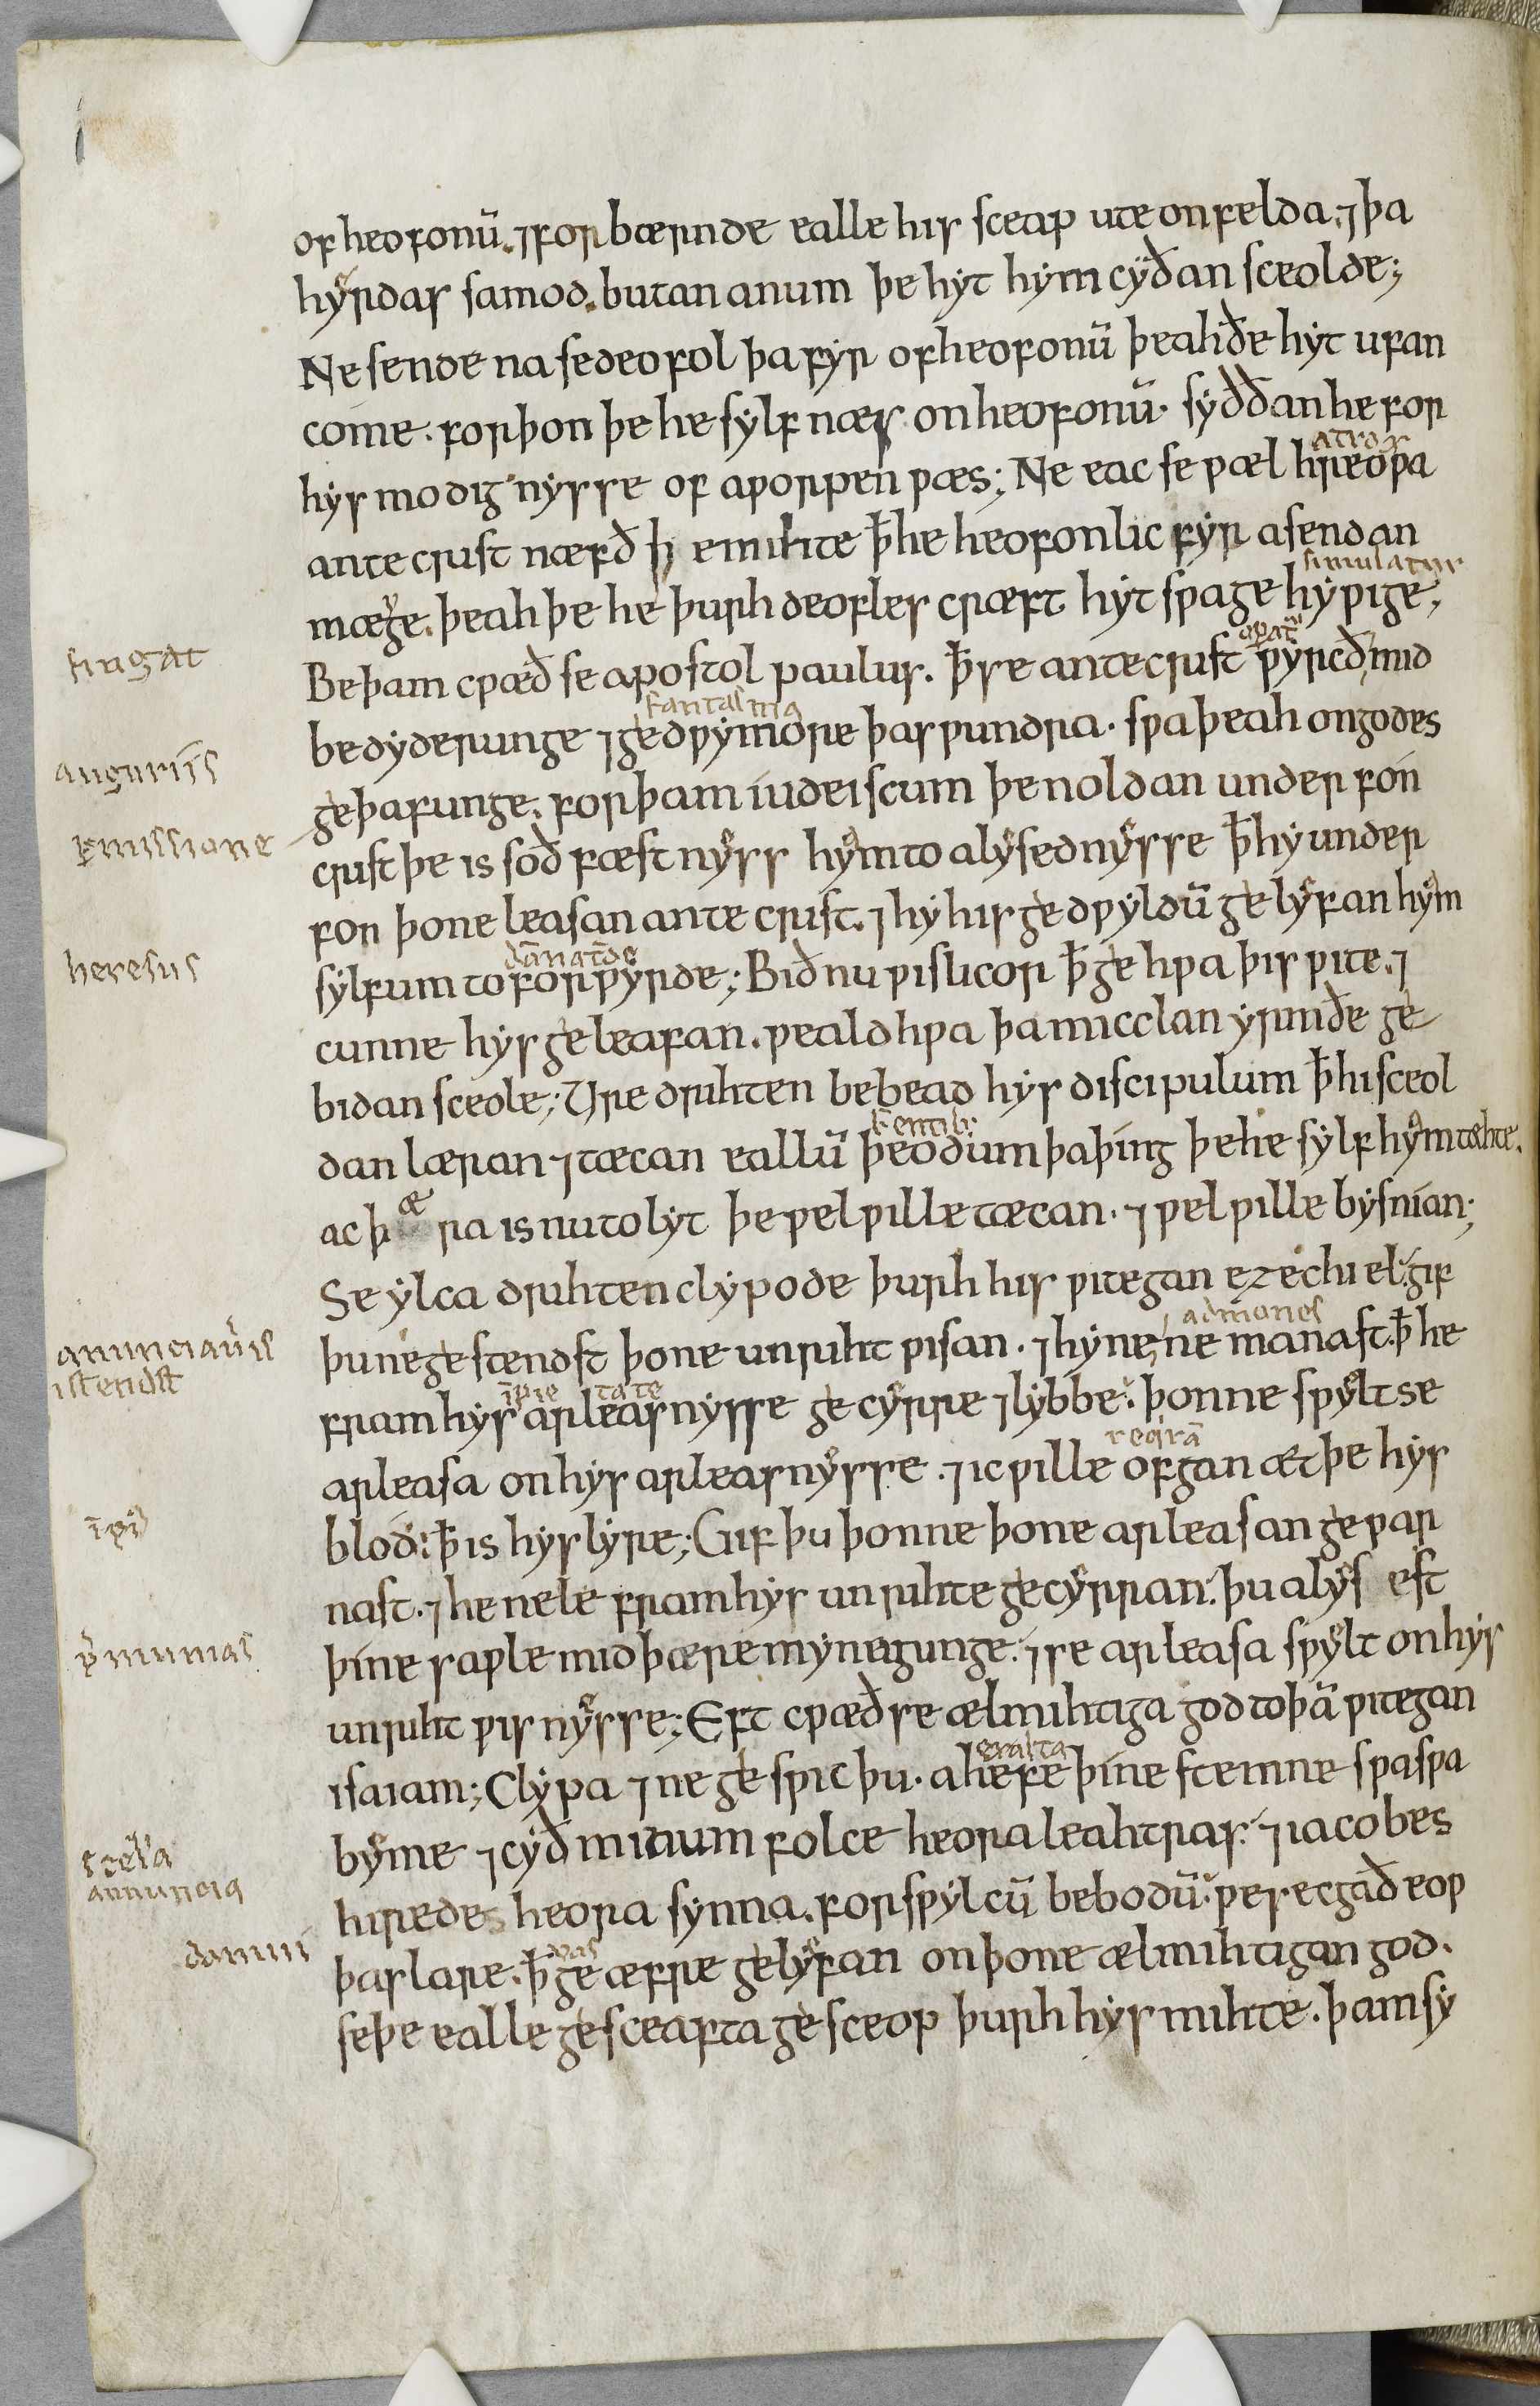 of heofonū. ⁊ forbærnde ealle his sceap ute on felda. ⁊ þa
hyrdas samod. butan anum þe hyt hym cyðan sceolde;
Ne sende na se deofol þa fyr of heofonū þeah ðe hyt ufan
come. forþon þe he sylf næs on heofonū. syððan he for
atrox
hys modignysse of aworpen wæs; Ne eac se wælhreowa
ante crist næfð þ emihte ꝥ he heofonlic fyr asendan
simulatur
mæge. þeah þe he þurh deofles cræft hyt swa gehywige;
fingat
Be þam cwæð se apostol paulus. ꝥ se ante crist wyrcð mid
fantasma
bedyderunge ⁊ gedwymore þas wundra. swa þeah on godes
auguriis
geþafunge. for þam iudeiscum þe noldan under fon
ꝑmissione
crist þe is soðfæstnyss hym to alysednysse ꝥ hy under
fon þone leasan ante crist. ⁊ hy his gedwyldū gelyfan hym
heresus
sylfum to forwyrde; Bið nu wislicor ꝥ gehwa þis wite. ⁊
cunne hys geleafan. weald hwa þa micclan yrmðe ge
bidan sceole; Ure drihten bebead hys discipulum ꝥ hi sceol
dan læran ⁊ tæcan eallū þeodum þa þing þe he sylf hym tæhte.
ac þæra is nu to lyt þe wel wille tæcan. ⁊ wel wille bysnian;
Se ylca drihten clypode þurh his witegan ezechiel. gif
admones
þu ne gestendst þone unriht wisan. ⁊ hyne ne manast. ꝥ he
īpie tate
fram hys arleasnysse gecyrre ⁊ lybbe. þonne swylt se
reqirā
arleasa on hys arleasnysse. ⁊ ic wille ofgan æt þe hys
blod. ꝥ is hys lyre; Gif þu þonne þone arleasan gewar
nast. ⁊ he nele fram hys unrihte gecyrran. þu alys est
þine sawle mid þære mynegunge. ⁊ se arleasa swylt on hys
unriht wisnysse; Eft cwæð se ælmihtiga god to þā witegan
exalta
isaiam; Clypa ⁊ ne geswic þu. ahefe þine stemne swa swa
byme ⁊ cyð minum folce heora leahtras. ⁊ iacobes
annuncia
hiredes heora synna. for swylcū bebodū. we secgað eow
þas lare. ꝥ ge æfre gelyfan on þone ælmihtigan god.
se þe ealle gesceafta gesceop þurh hys mihte. þam sy